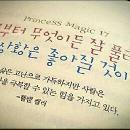 Princess Magic 17
부터 무엇이든 잘 풀
상황은 좋아질 것이
삶은 고난으로 가득하지만 사람은
극복할 수 있는 힘을 가지고 있다.
-헬렌 켈러